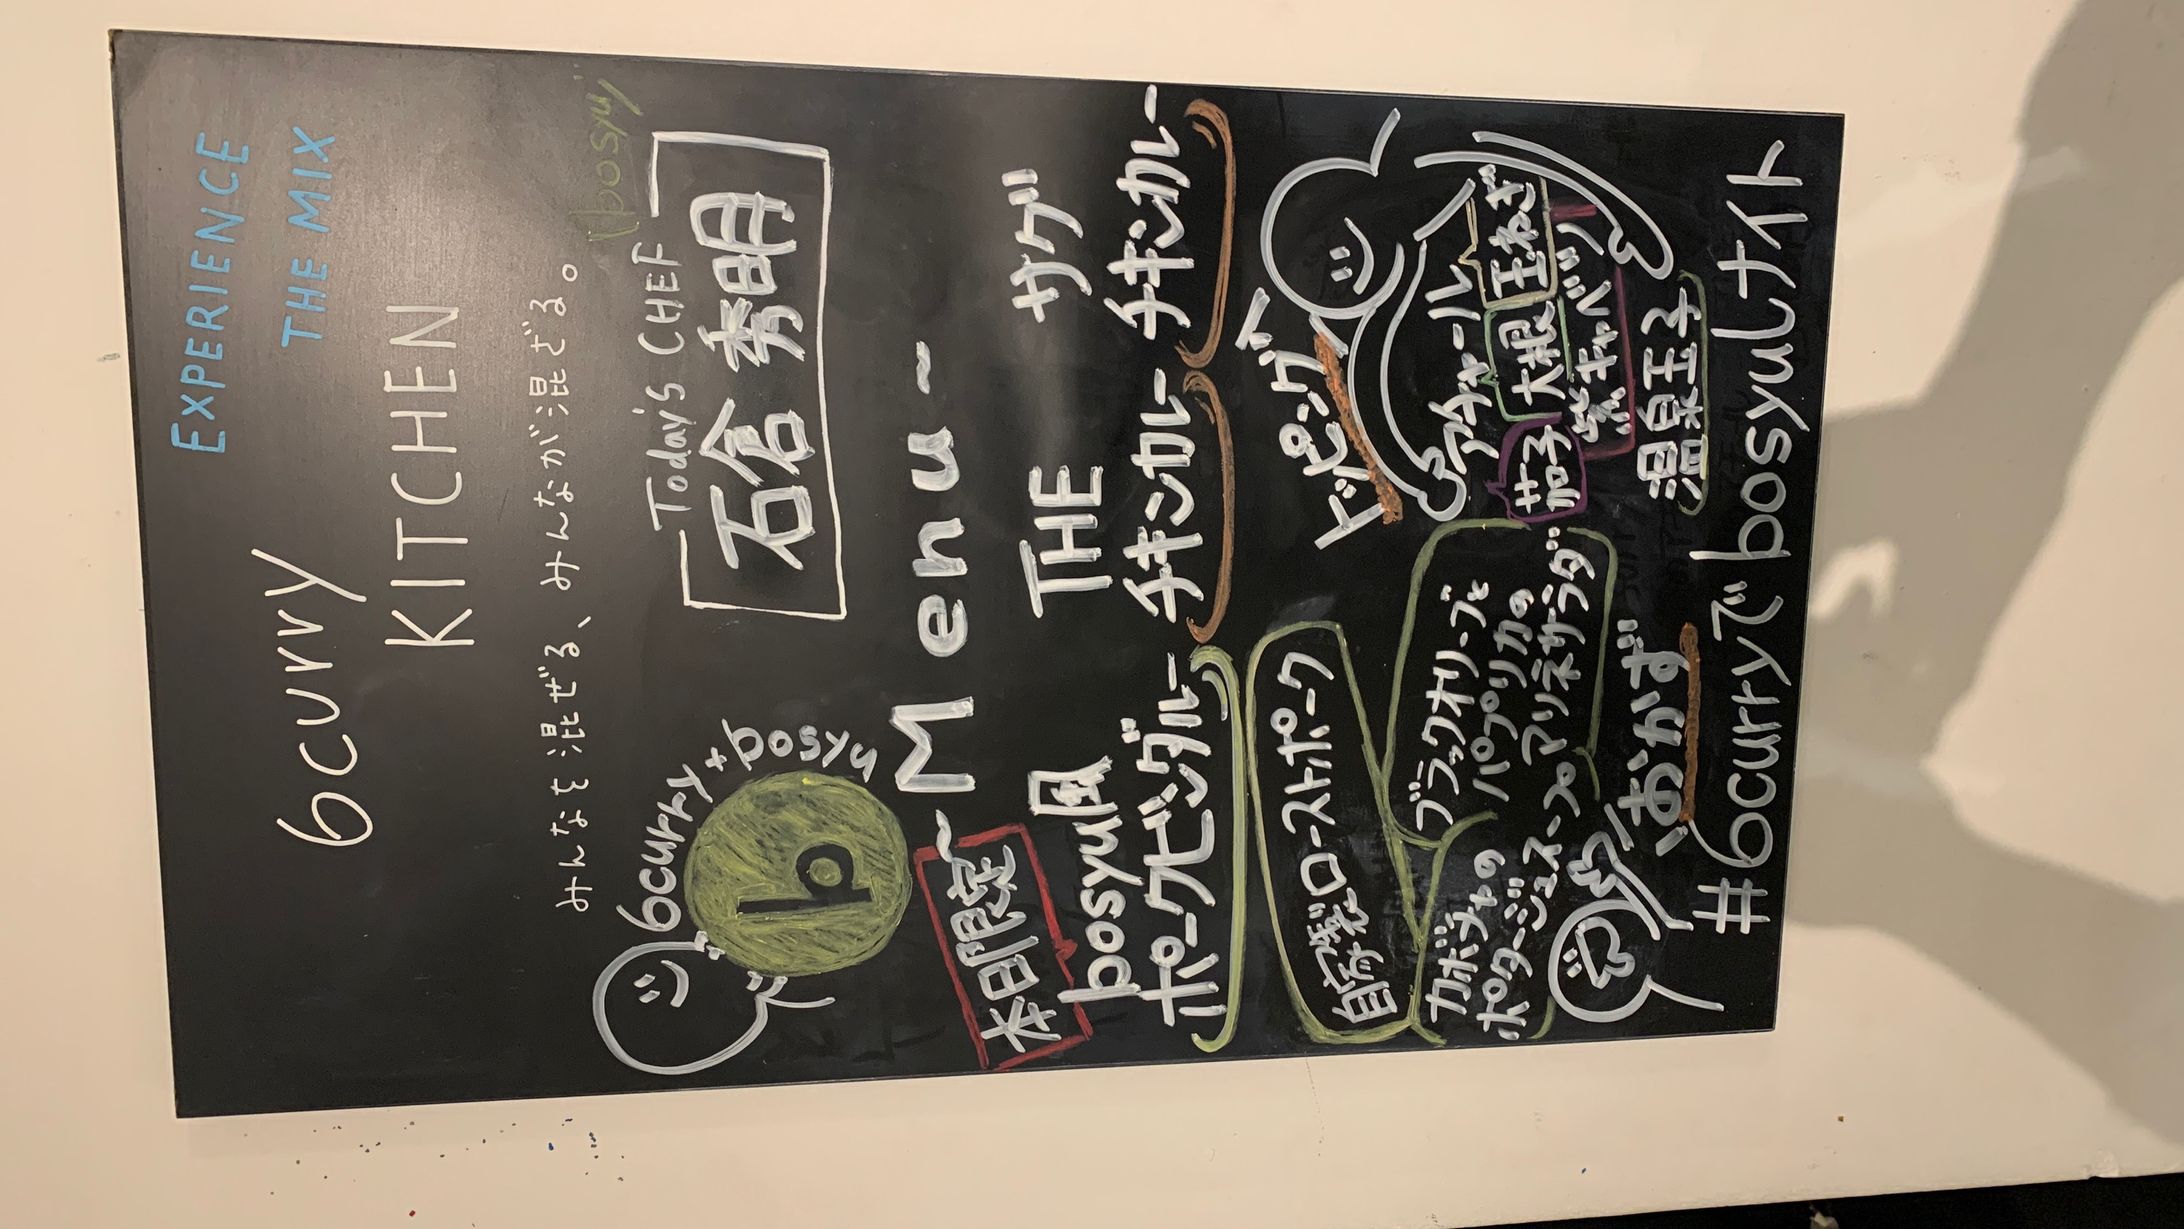 EXPERIENCE
THE MIX
6curry
KITCHEN
みんなを混ぜる、みんなが混ざる。
"bosyu"
6curry+bosyu
b
Today's CHEF
石倉 秀明
~Menu~
本日限定
bosyu風
ポークビンダルー
THE
チキンカレー
ザグ
チキンカレー
自家製ローストポーク
ブラックオリーブと
パプリカの
マリネサラダ
カボチャの
ポタージュスープ
おかず
トッピング
アチャール
茄子 大根 玉ねぎ
紫キャベツ
温泉玉子
#6curryで bosyuしナイト